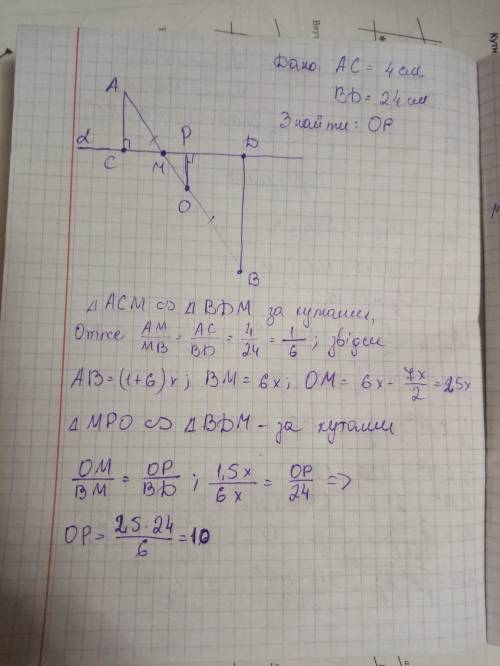 Дано: AC = 4 см
BD = 24 см
Знайти: OP
A
P
D
α
C
M
O
B
△ ACM ∾ △ BDM за кутами,
Отже AM/MB = AC/BD = 4/24 = 1/6 ; звідси
AB = (1+6)x ; BM = 6x ; OM = 6x - 7x/2 = 2,5x
△ MPO ∾ △ BDM - за кутами
OM/BM = OP/BD ; 1,5x/6x = OP/24 =>
OP = 2,5·24/6 = 10